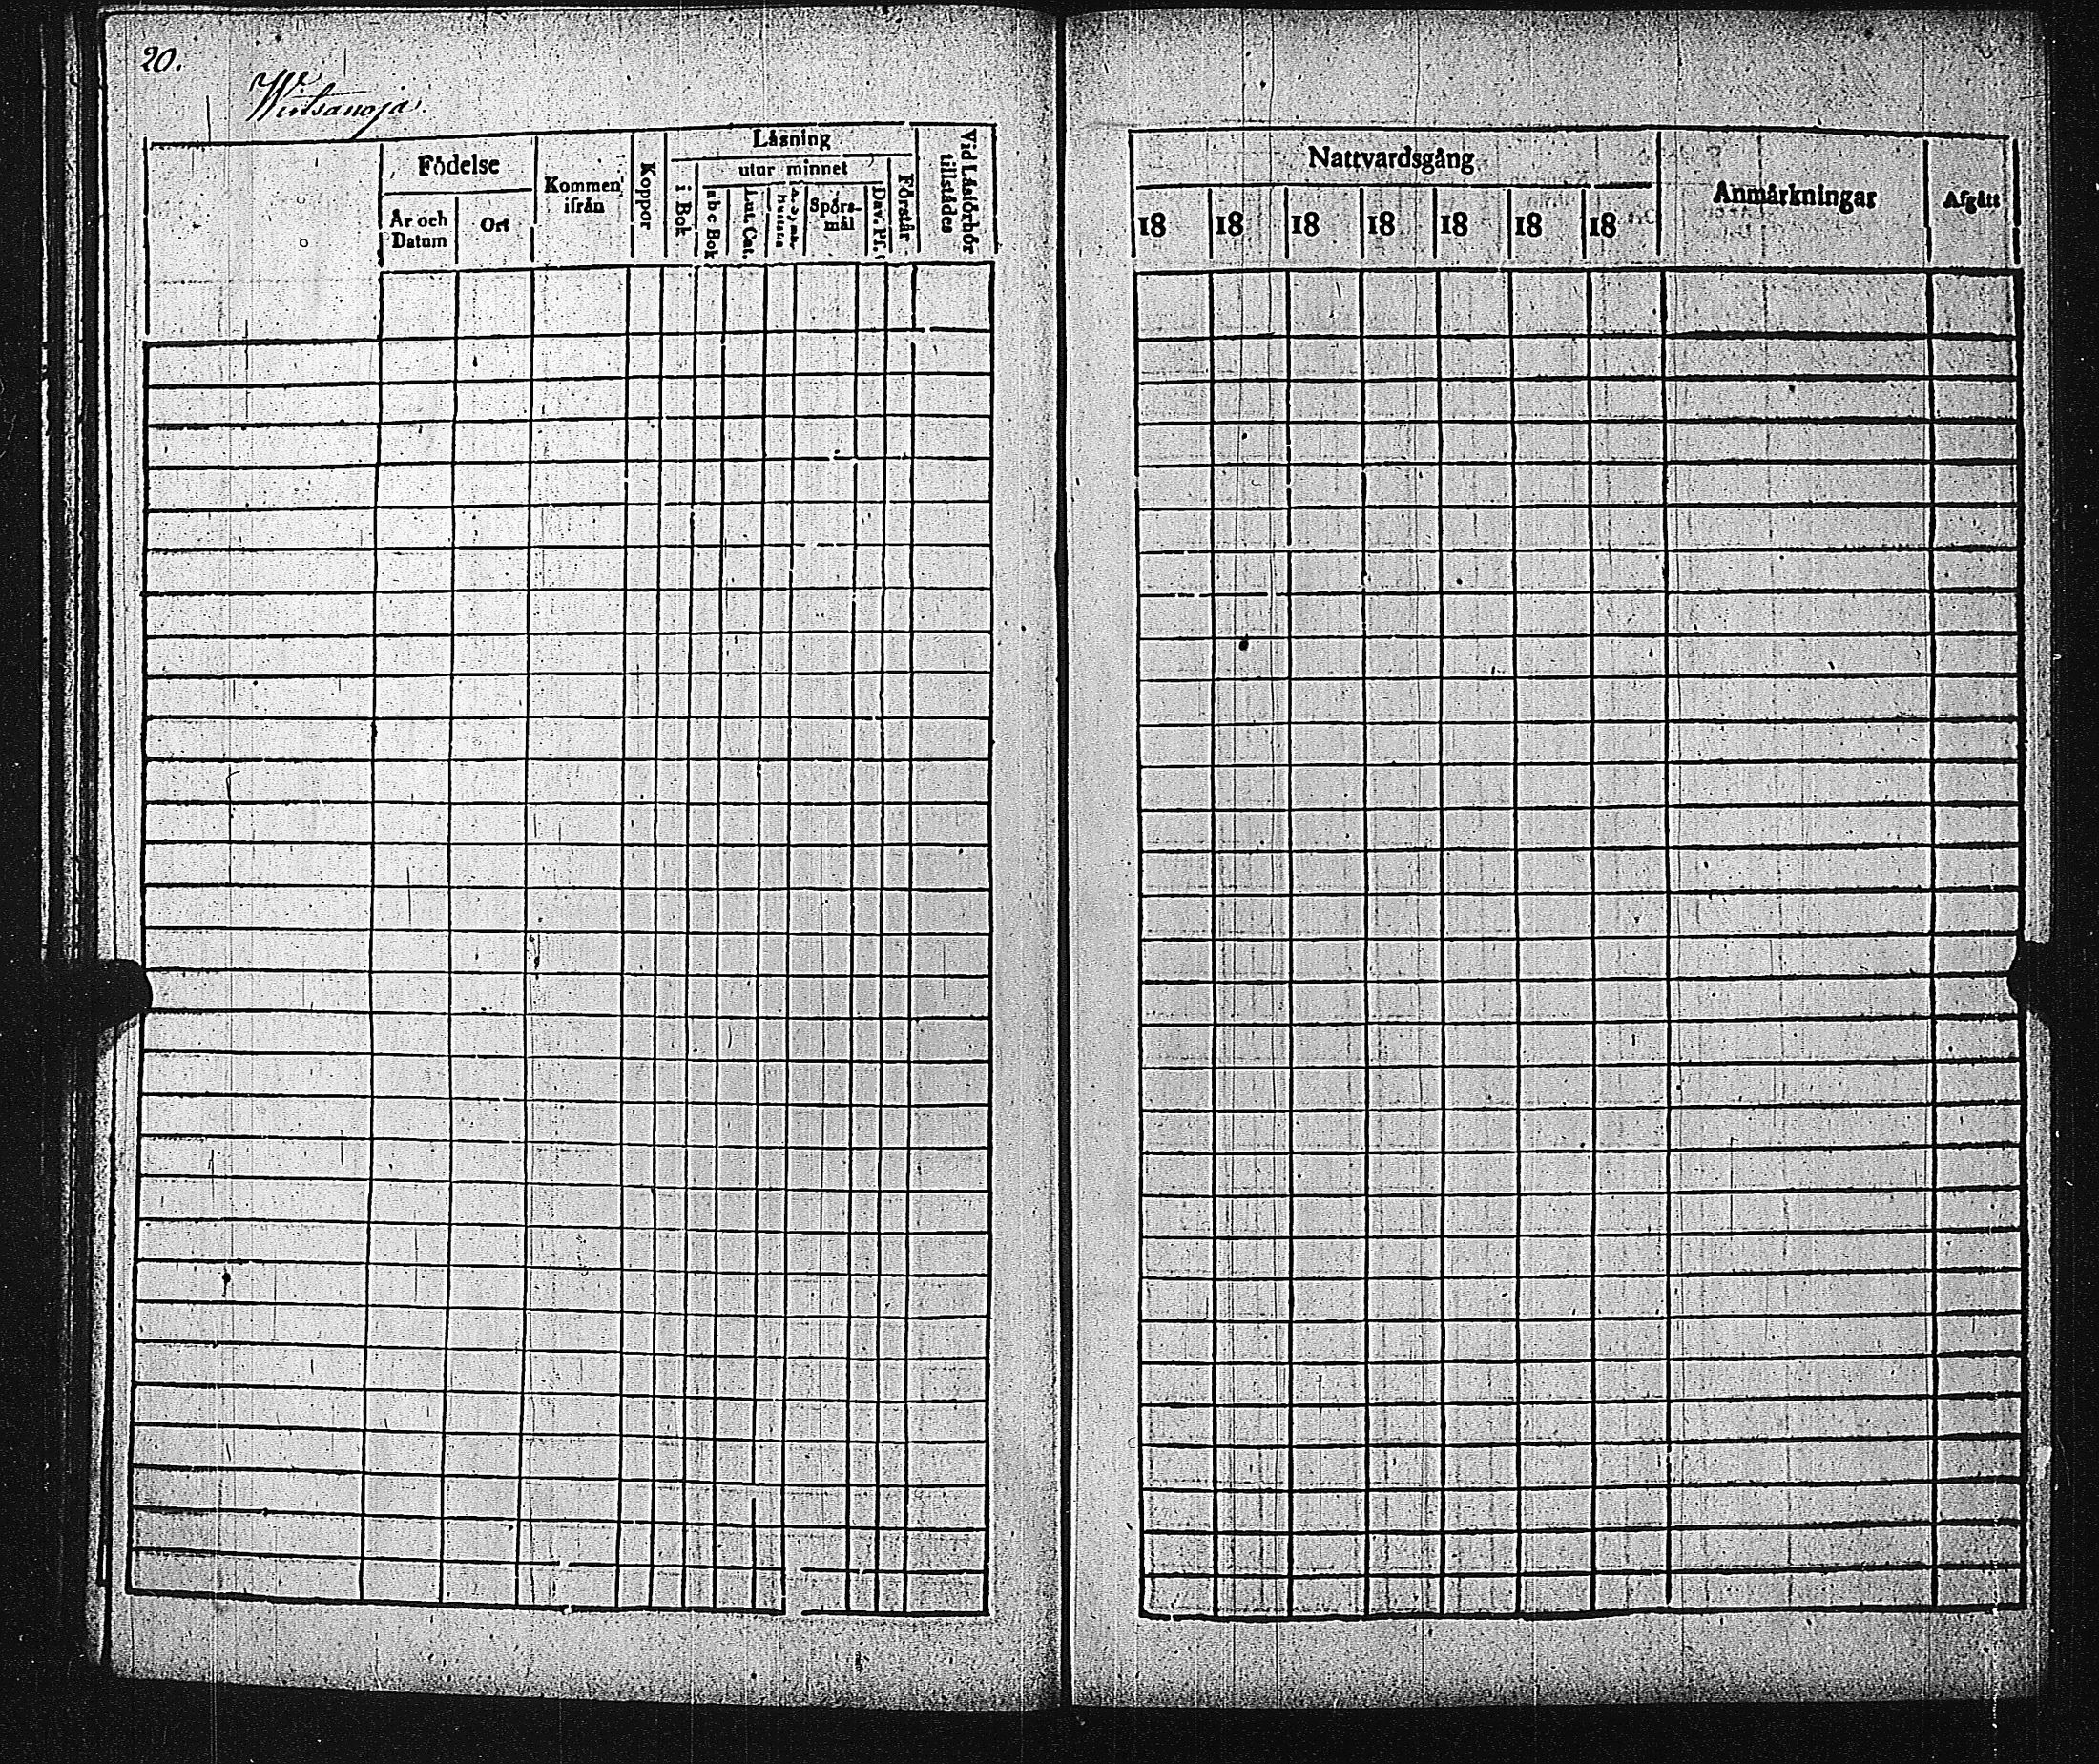 20.
Wirtsanoja
Födelse
År och Datum
Ort
Kommen ifrån
Koppor
Läsning
i Bok
utur minnet
a b c Bok
Lut. Cat.
Spörsmål
Dav. Ps.
Förstår
Vid Läsförhör tillstädes
Nattvardsgång
18 18 18 18 18 18 18
Anmärkningar
Afgått